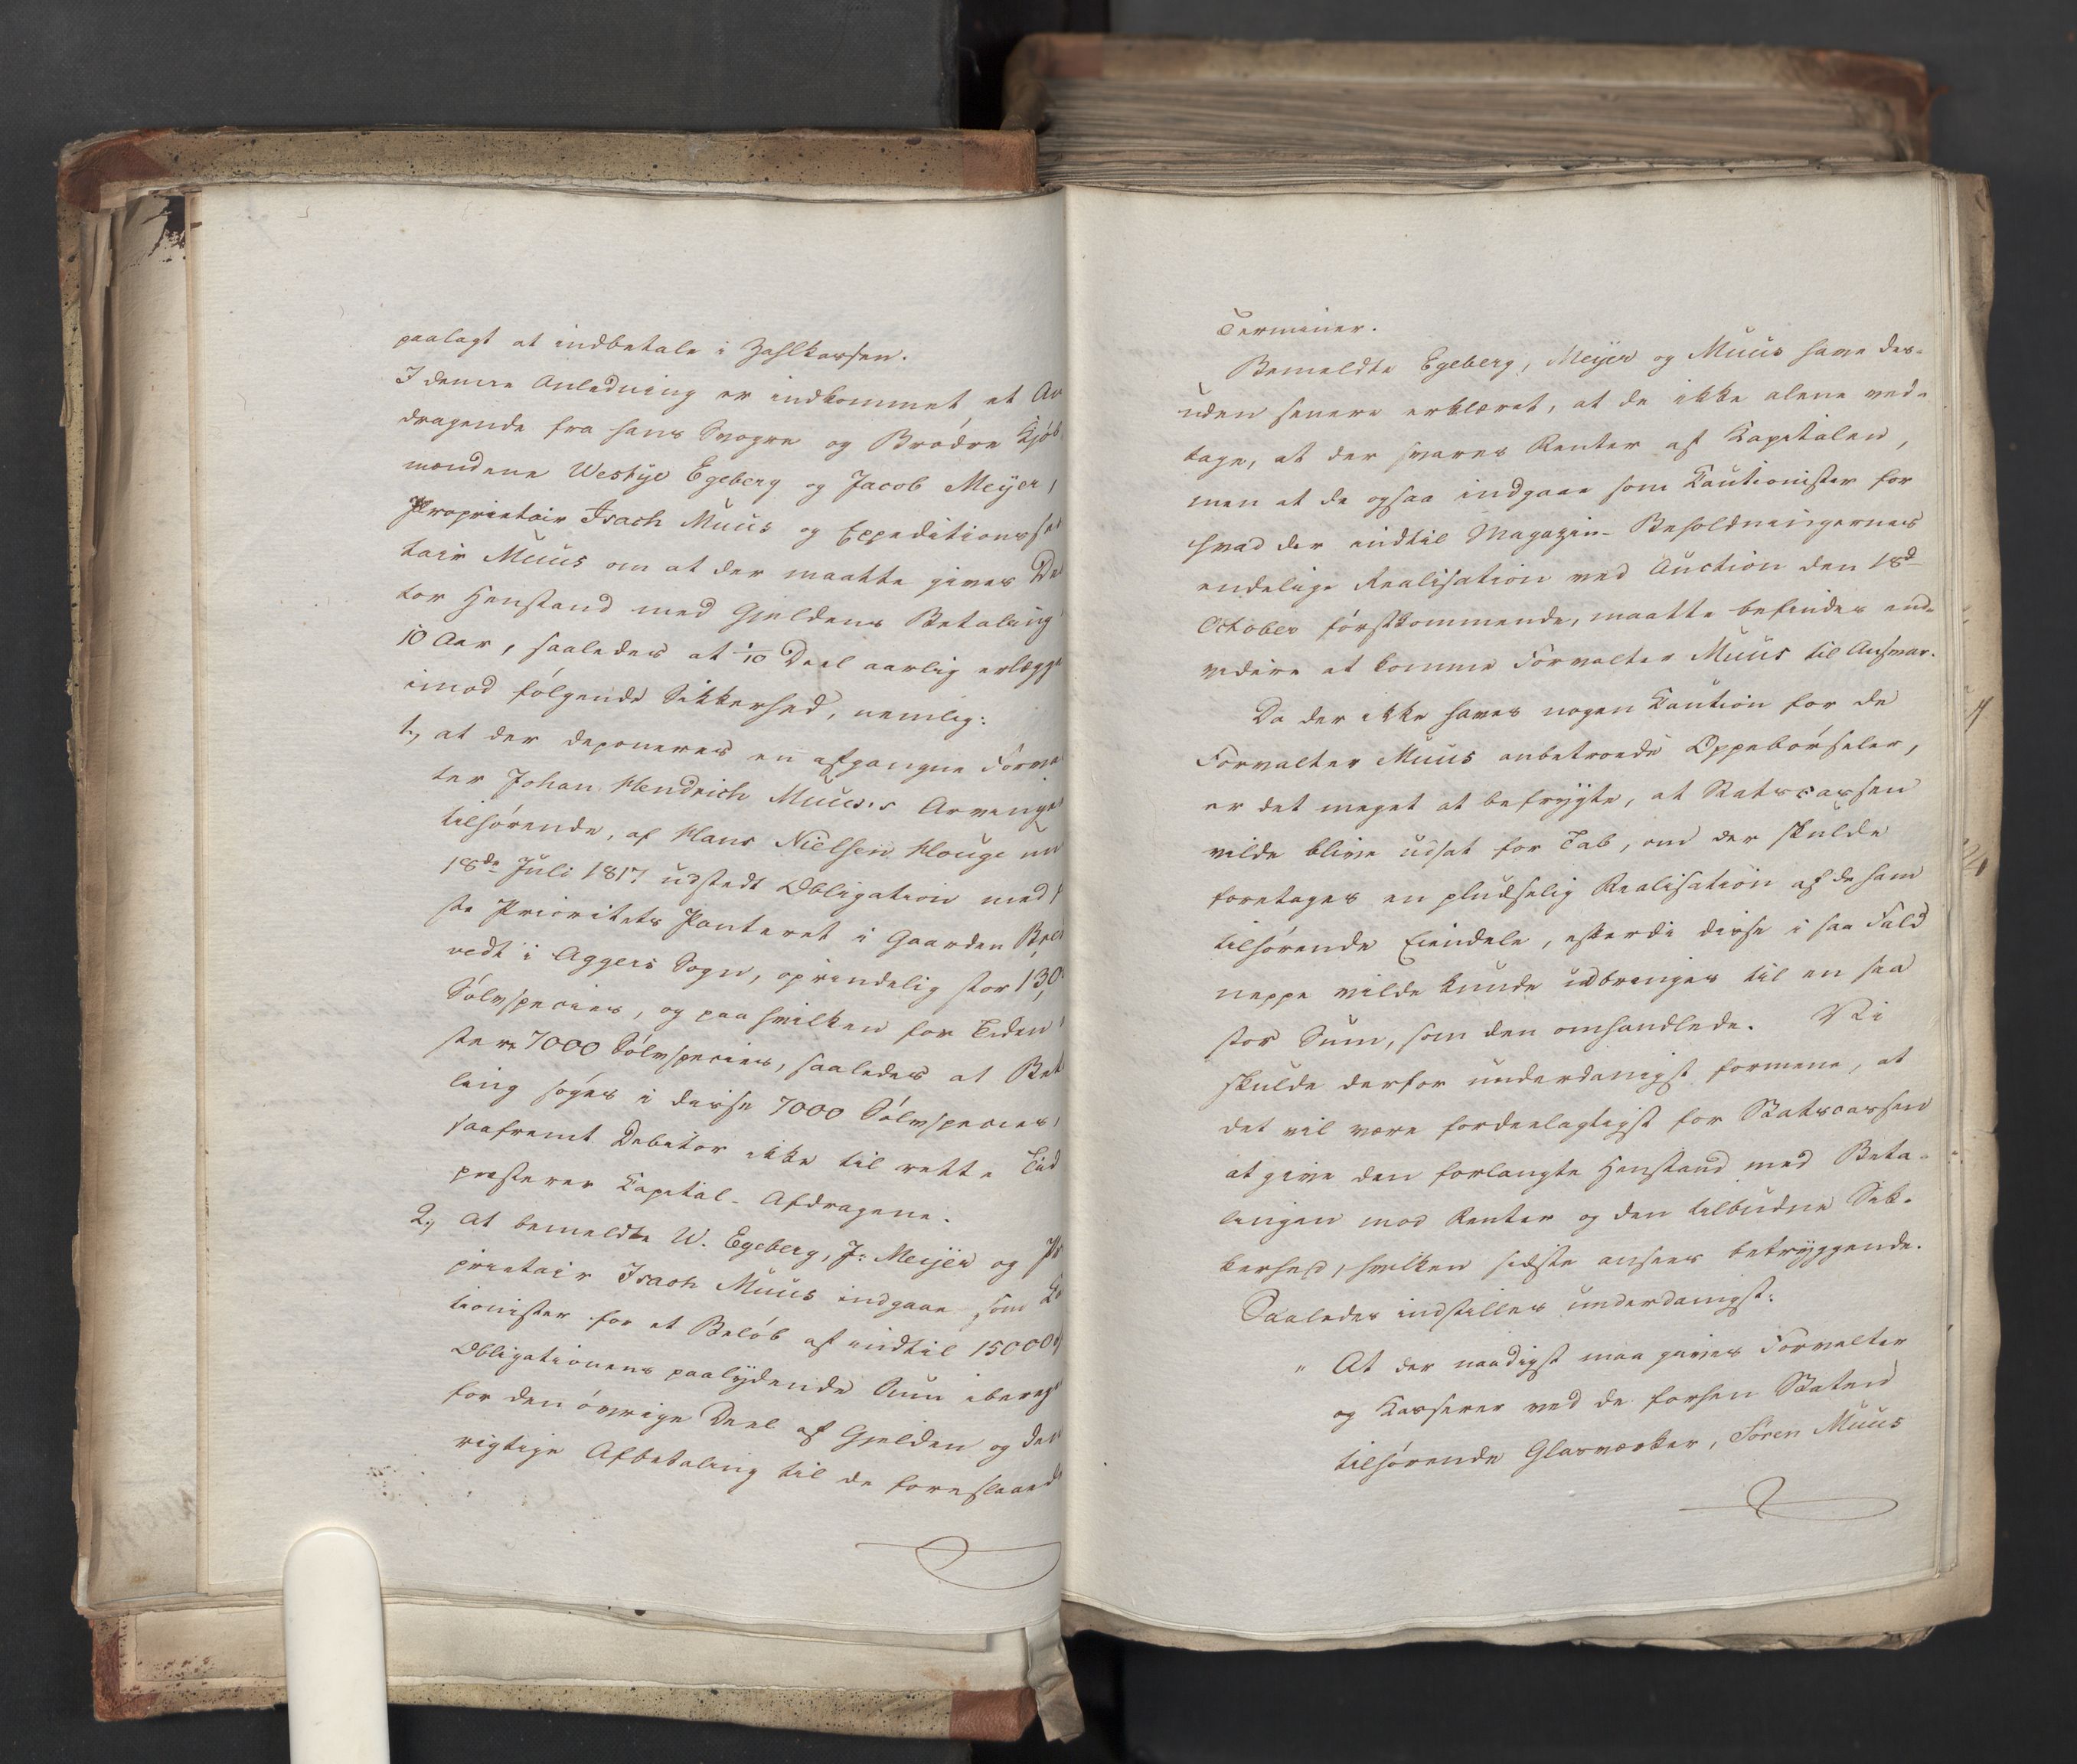 paalagt at indbetale i Zahlkassen.
I denne Anledning er indkommet et An
dragende fra hans Svogre og Brødre Kjøb
mændene Westye Egeberg og Jacob Meÿer,
Proprietair Isach Muus og Expeditionsse
tair Muus om at der maatte gives De
tor Henstand med Gjeldens Betaling
10 Aar, saaledes at 1/10 Deel aarlig erlægge
imod følgende Sikkerhed, nemlig:
1., at der deponeres en afgangne Forval
ter Johan Hendrich Muus's Arvinge
tilhørende, af Hans Nielsen Houge un
18de Juli 1817 udstedt Obligation med
ste Prioritets Panteret i Gaarden Bre
vedt i Aggers Sogn, oprindelig stor 130
Sølvspecies, og paa hvilken for Tiden
ster 7000 Sølvspecies, saaledes at Bet
ling søges i disse 7000 Sølvspecies,
saafremt Debitor ikke til rette Tid
præsterer Capital-Afdragene.
2., at bemeldte W. Egeberg, J: Meÿer og Pro
prietair Isach Muus indgaae som Ca
tionister for et Beløb af indtil 15000
Obligationens paalÿdende Sum ibereg
for den øvrige Deel af Gjelden og den
rigtige Afbetaling til de foreslaaede
Terminer.
Bemeldte Egeberg, Meÿer og Muus have des-
uden senere erklæret, at de ikke alene ved-
tage, at der svares Renter af Kapitalen,
men at de ogsaa indgaae som Cautionister for
hvad der indtil Magazin-Beholdningernes
endelige Realisation ved Auction den 18d
October førstkommende, maatte befindes end-
videre at komme Forvalter Muus til Ansvar.
Da der ikke haves nogen Caution for de
Forvalter Muus anbetroede Oppebørseler,
er det meget at befrÿgte, at Statscassen
vilde blive udsat for Tab, om der skulde
foretages en pludselig Realisation af de ham
tilhørende Eiendele, efterdi disse i saa Fald
neppe vilde kunde udbringes til en saa
stor Sum, som den omhandlede. Vi
skulde derfor underdanigst formene, at
det vil være fordeelagtigst for Statscassen
at give den forlangte Henstand med Beta-
lingen mod Renter og den tilbudne Sik-
kerhed, hvilken sidste ansees betrÿggende.
Saaledes indstilles underdanigst:
" At der naadigst maa gives Forvalter
og Kasserer ved de forhen Staten
tilhørende Glasværker, Søren Muus